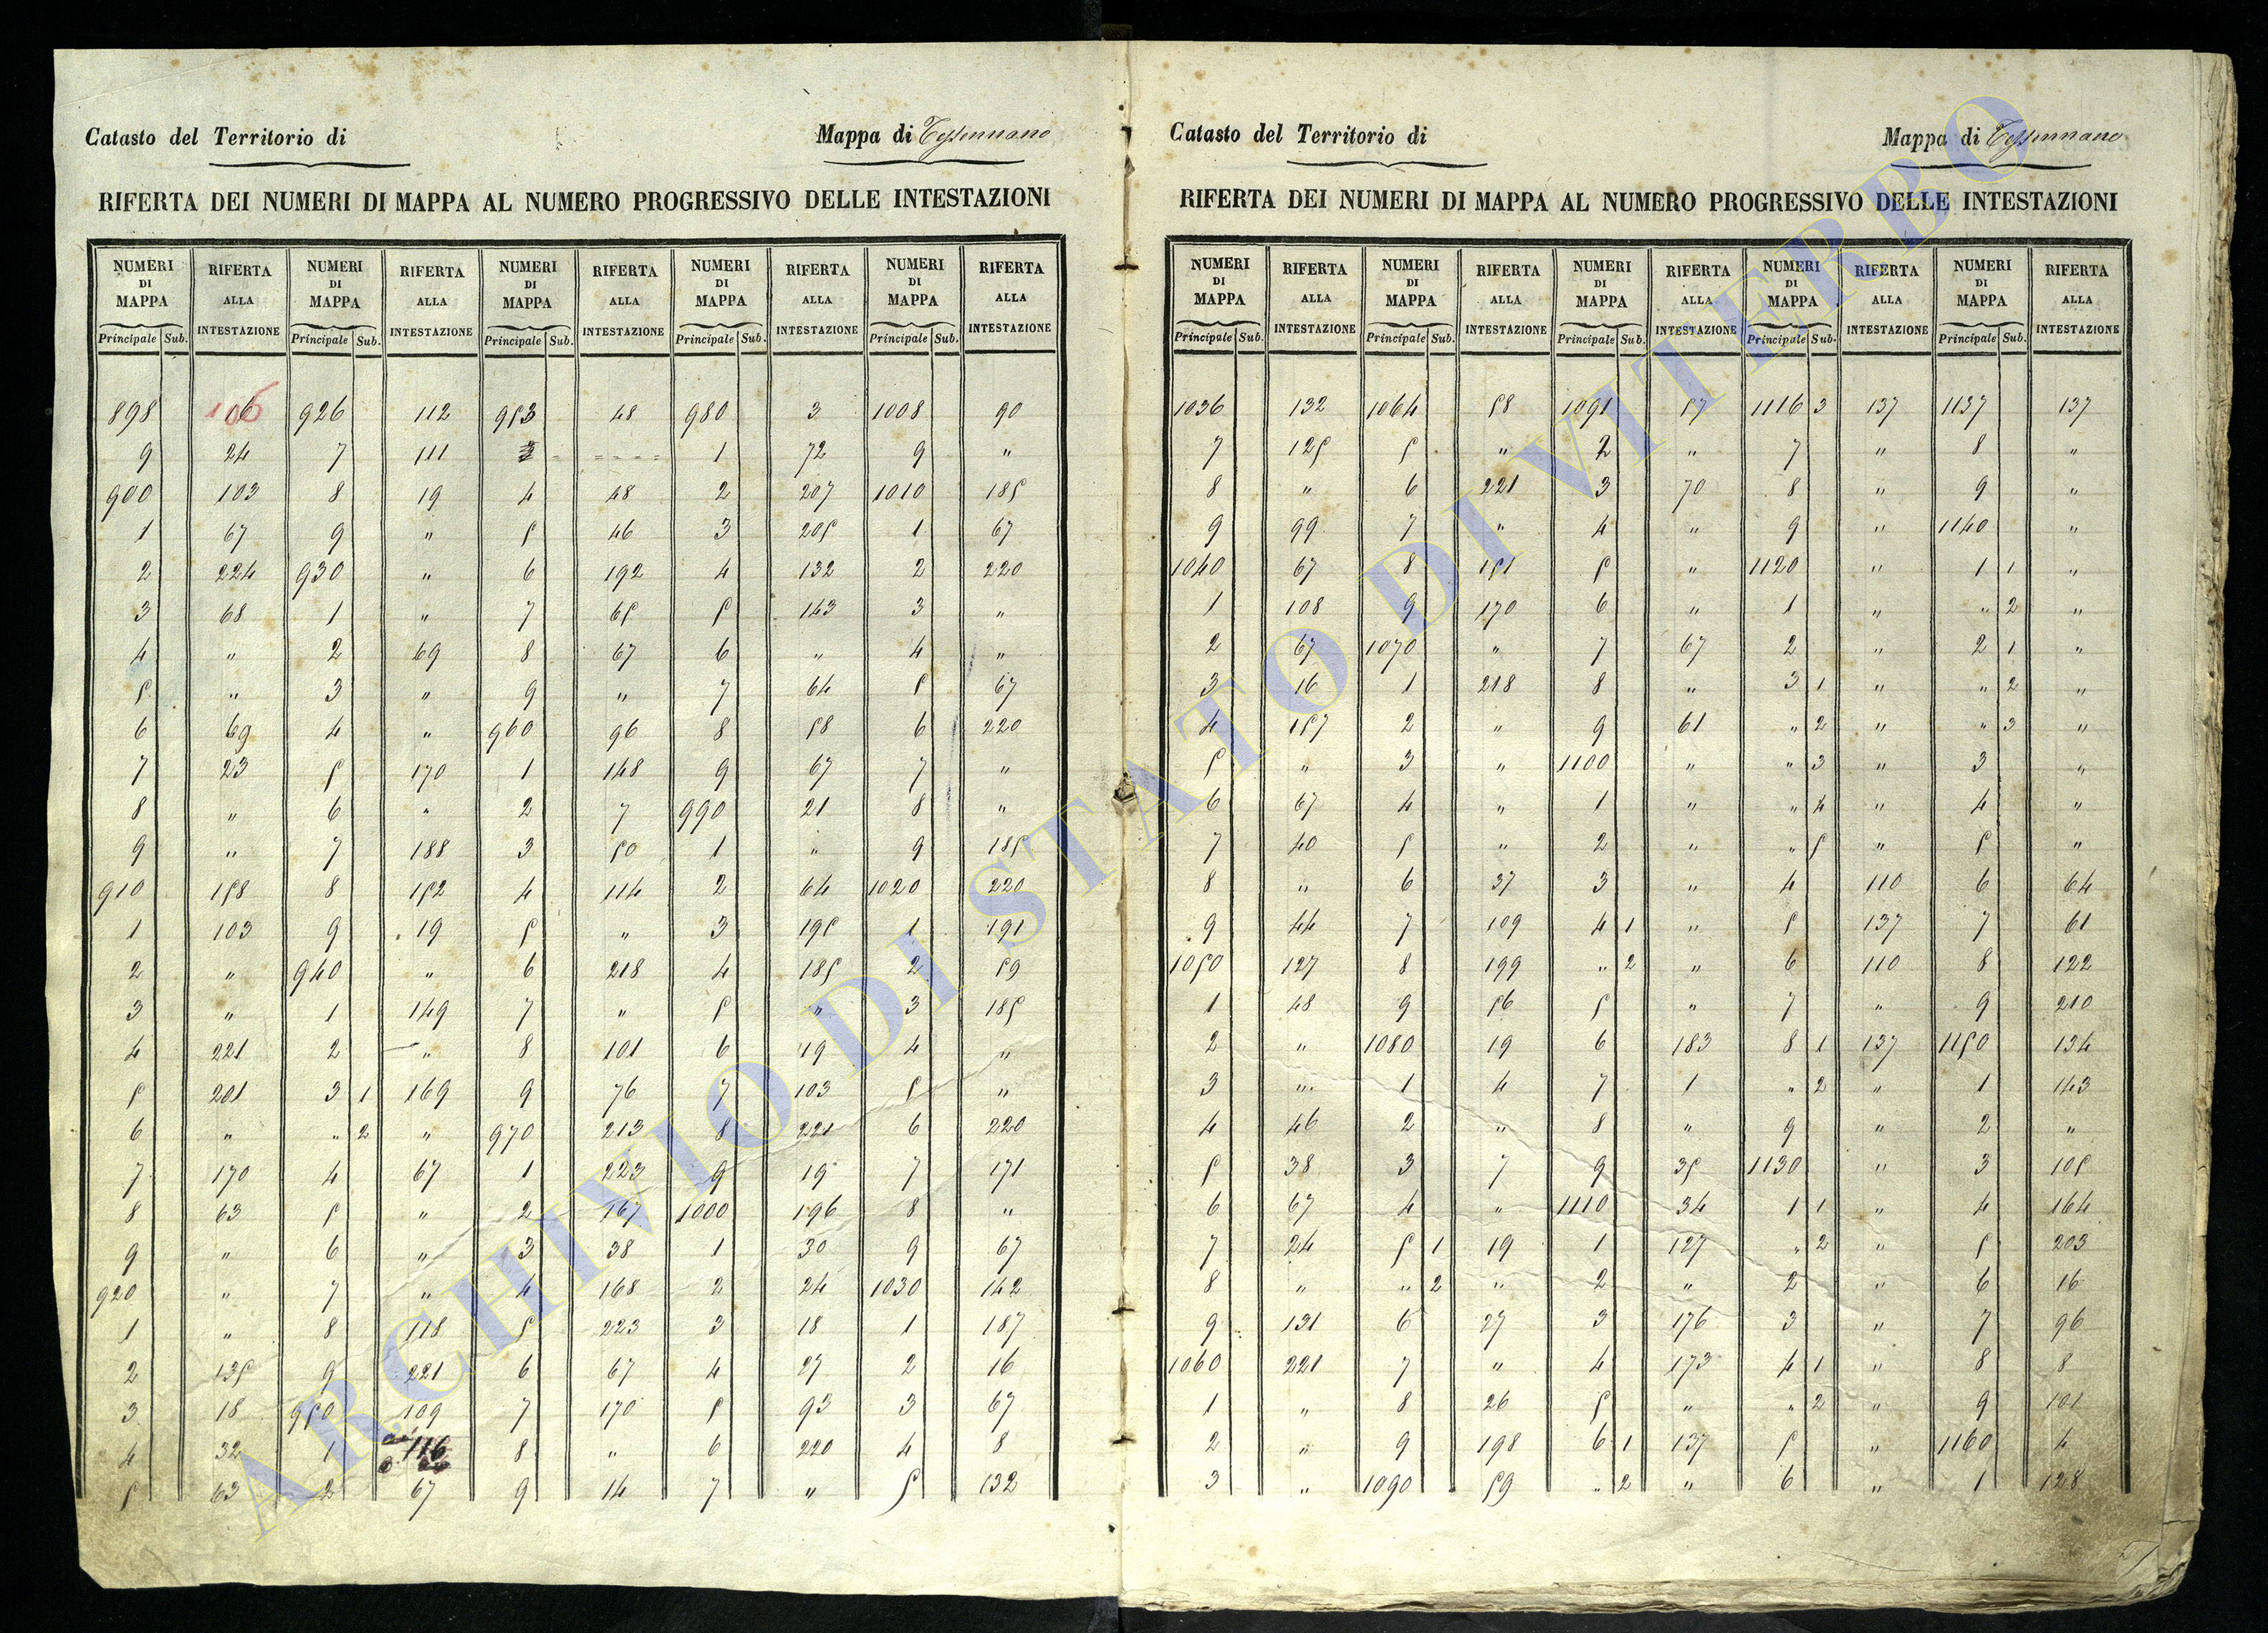 Catasto del Territorio di Mappa di Tessennano
RIFERTA DEI NUMERI DI MAPPA AL NUMERO PROGRESSIVO DELLE INTESTAZIONI
NUMERI DI MAPPA RIFERTA ALLA INTESTAZIONE NUMERI DI MAPPA RIFERTA ALLA INTESTAZIONE NUMERI DI MAPPA RIFERTA ALLA INTESTAZIONE NUMERI DI MAPPA RIFERTA ALLA INTESTAZIONE NUMERI DI MAPPA RIFERTA ALLA INTESTAZIONE
Principale Sub. Principale Sub. Principale Sub. Principale Sub. Principale Sub.
898 106 926 112 953 48 980 3 1008 90
9 24 7 111 - - - - 1 72 9 "
900 103 8 19 4 48 2 207 1010 185
1 67 9 " 5 46 3 205 1 67
2 224 930 " 6 192 4 132 2 220
3 68 1 " 7 65 5 143 3 "
4 " 2 69 8 67 6 " 4 "
5 " 3 " 9 " 7 64 5 67
6 69 4 " 960 96 8 58 6 220
7 23 5 170 1 148 9 67 7 "
8 " 6 " 2 7 990 21 8 "
9 " 7 188 3 50 1 " 9 185
910 158 8 152 4 114 2 64 1020 220
1 103 9 19 5 " 3 195 1 191
2 " 940 " 6 218 4 185 2 59
3 " 1 149 7 " 5 " 3 185
4 221 2 " 8 101 6 19 4 "
5 201 3 1 169 9 76 7 103 5 "
6 " " 2 " 970 213 8 221 6 220
7 170 4 67 1 223 9 19 7 171
8 63 5 " 2 167 1000 196 8 "
9 " 6 " 3 38 1 30 9 67
920 " 7 " 4 168 2 24 1030 142
1 " 8 118 5 223 3 18 1 187
2 135 9 221 6 67 4 27 2 16
3 18 950 109 7 170 5 93 3 67
4 32 1 116 8 " 6 220 4 8
5 63 2 67 9 14 7 " 5 132
Catasto del Territorio di Mappa di Tessennano
RIFERTA DEI NUMERI DI MAPPA AL NUMERO PROGRESSIVO DELLE INTESTAZIONI
NUMERI DI MAPPA RIFERTA ALLA INTESTAZIONE NUMERI DI MAPPA RIFERTA ALLA INTESTAZIONE NUMERI DI MAPPA RIFERTA ALLA INTESTAZIONE NUMERI DI MAPPA RIFERTA ALLA INTESTAZIONE NUMERI DI MAPPA RIFERTA ALLA INTESTAZIONE
Principale Sub. Principale Sub. Principale Sub. Principale Sub. Principale Sub.
1036 132 1064 58 1091 57 1116 3 137 1137 137
7 125 5 " 2 " 7 " 8 "
8 " 6 221 3 70 8 " 9 "
9 99 7 " 4 " 9 " 1140 "
1040 67 8 151 5 " 1120 " 1 1 "
1 108 9 170 6 " 1 " " 2 "
2 67 1070 " 7 67 2 " 2 1 "
3 16 1 218 8 " 3 1 " " 2 "
4 157 2 " 9 61 " 2 " " 3 "
5 " 3 " 1100 " " 3 " 3 "
6 67 4 " 1 " " 4 " 4 "
7 40 5 " 2 " " 5 " 5 "
8 " 6 37 3 " 4 110 6 64
9 44 7 109 4 1 " 5 137 7 61
1050 127 8 199 " 2 " 6 110 8 122
1 48 9 56 5 " 7 " 9 210
2 " 1080 19 6 183 8 1 137 1150 134
3 " 1 4 7 1 " 2 " 1 143
4 46 2 " 8 " 9 " 2 "
5 38 3 7 9 35 1130 " 3 105
6 67 4 " 1110 34 1 1 " 4 164
7 24 5 1 19 1 127 " 2 " 5 203
8 " " 2 " 2 " 2 " 6 16
9 131 6 27 3 176 3 " 7 96
1060 221 7 " 4 173 4 1 " 8 8
1 " 8 26 5 " " 2 " 9 101
2 " 9 198 6 1 137 5 " 1160 4
3 " 1090 59 " 2 " 6 " 1 128
ARCHIVIO DI STATO DI VITERBO